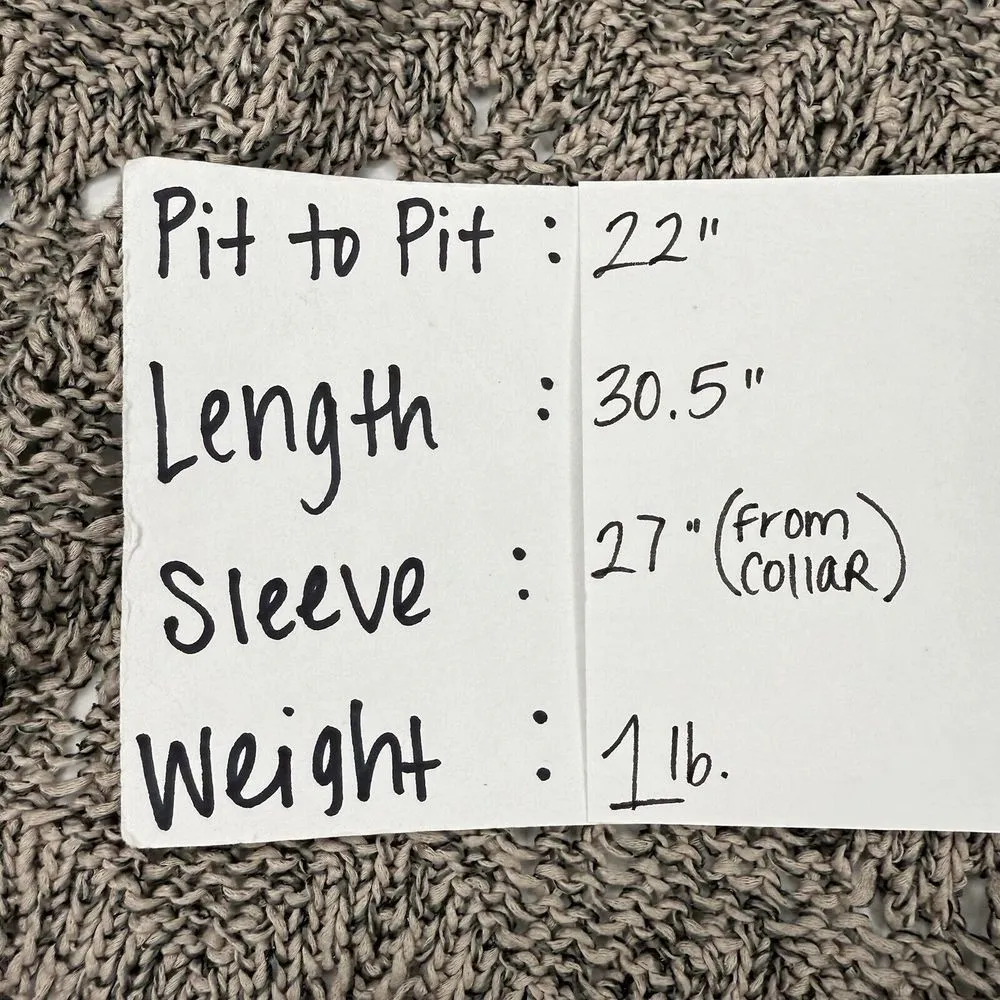 Pit to Pit : 22"
Length : 30.5"
Sleeve : 27" (from collar)
Weight : 1 lb.